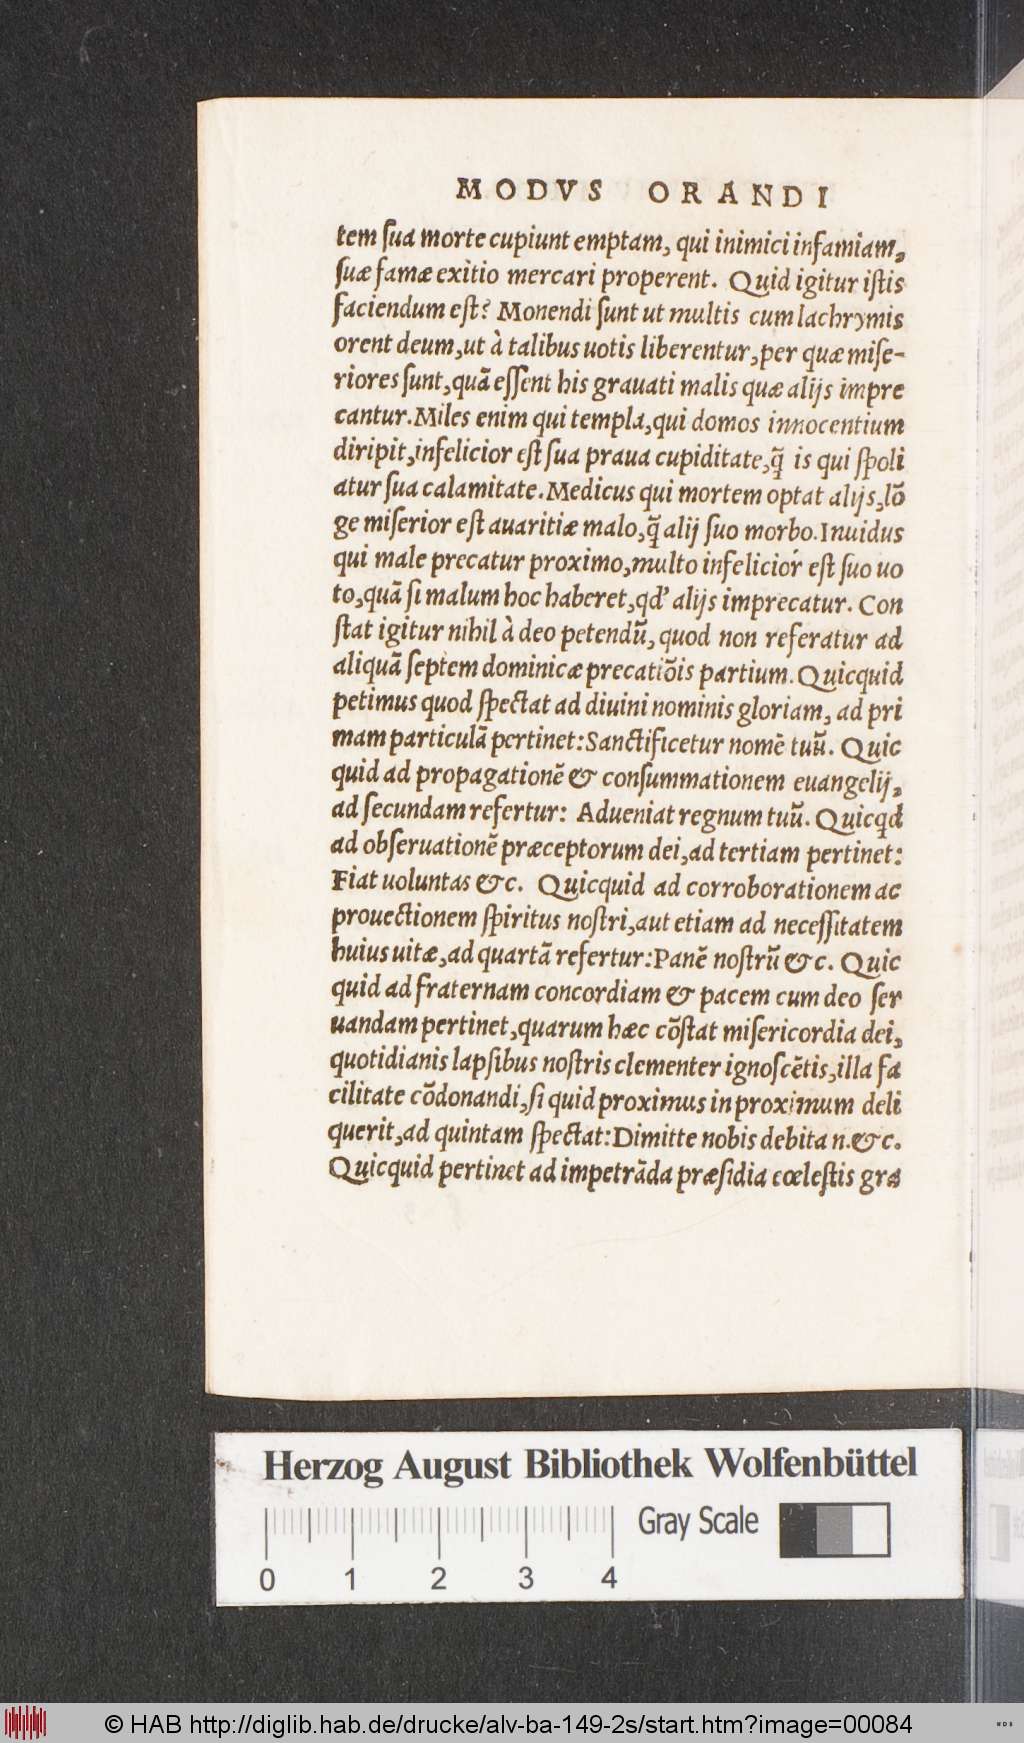 MODVS ORANDI
tem ſua morte cupiunt emptam, qui inimici infamiam,
ſuæ famæ exitio mercari properent. Quid igitur iſtis
faciendum eſt? Monendi ſunt ut multis cum lachrymis
orent deum, ut à talibus uotis liberentur, per quæ miſe-
riores ſunt, quã eſſent his grauati malis quæ alijs impre
cantur. Miles enim qui templa, qui domos innocentium
diripit, infelicior eſt ſua praua cupiditate, q̃ is qui ſpoli
atur ſua calamitate. Medicus qui mortem optat alijs, lõ
ge miſerior eſt auaritiæ malo, q̃ alij ſuo morbo. Inuidus
qui male precatur proximo, multo infelicior eſt ſuo uo
to, quã ſi malum hoc haberet, qd' alijs imprecatur. Con
ſtat igitur nihil à deo petendũ, quod non referatur ad
aliquã ſeptem dominicæ precatiõis partium. Quicquid
petimus quod ſpectat ad diuini nominis gloriam, ad pri
mam particulã pertinet: Sanctificetur nomẽ tuũ. Quic
quid ad propagationẽ & conſummationem euangelij,
ad ſecundam refertur: Adueniat regnum tuũ. Quicqd
ad obſeruationẽ præceptorum dei, ad tertiam pertinet:
Fiat uoluntas &c. Quicquid ad corroborationem ac
prouectionem ſpiritus noſtri, aut etiam ad neceſſitatem
huius uitæ, ad quartã refertur: Panẽ noſtrũ &c. Quic
quid ad fraternam concordiam & pacem cum deo ſer
uandam pertinet, quarum hæc cõſtat miſericordia dei,
quotidianis lapſibus noſtris clementer ignoſcẽtis, illa fa
cilitate cõdonandi, ſi quid proximus in proximum deli
querit, ad quintam ſpectat: Dimitte nobis debita n. &c.
Quicquid pertinet ad impetrãda præſidia cœleſtis gra
Herzog August Bibliothek Wolfenbüttel
Gray Scale
0 1 2 3 4
© HAB http://diglib.hab.de/drucke/alv-ba-149-2s/start.htm?image=00084